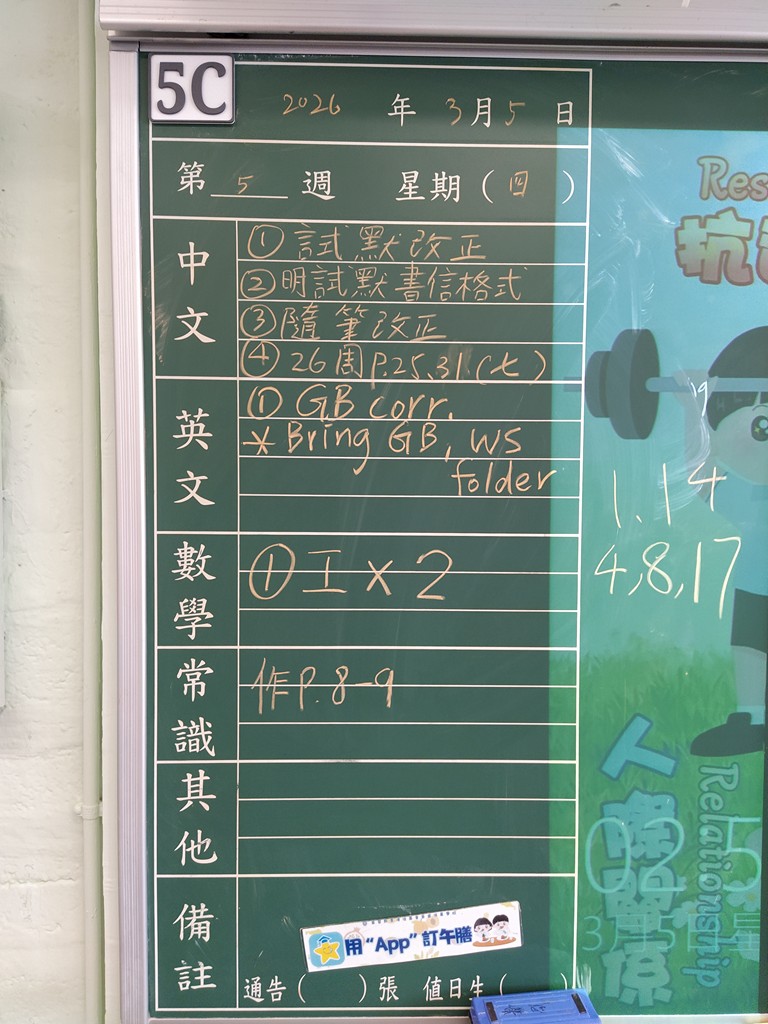 5C
2026 年 3月5日
第 5 週 星期(四)
中文
①試默改正
②明試默書信格式
③隨筆改正
④26周P.25,31(七)
英文
① GB corr.
* Bring GB, WS
folder
數學
①工×2
常識
作P.8-9
其他
備註
用“App”訂午膳
通告( )張 值日生(
Res
抗
19
1.14
4,8,17
人際關係
Relationship
02 5
3月5日星